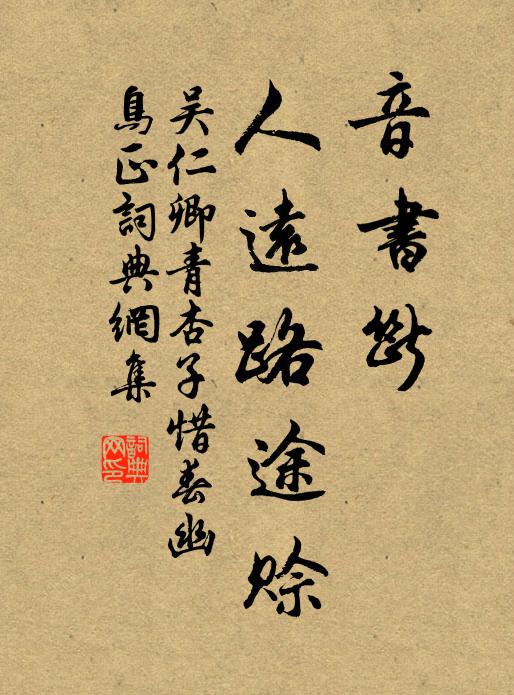 音書斷
人遠路途賒
吳仁卿青杏子惜春幽
鳥正詞典網集
詞典
网印